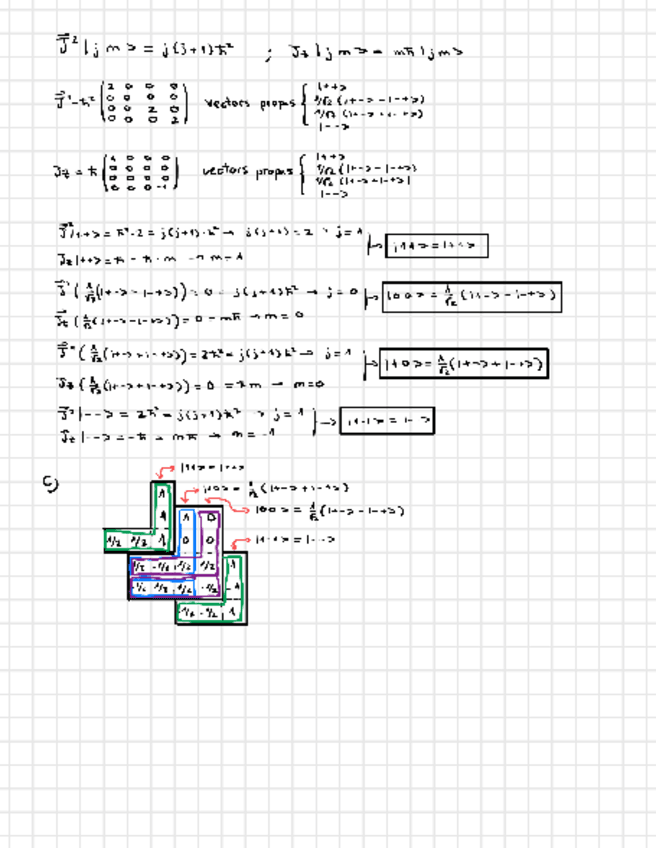 J⃗² |j m> = j(j+1)ħ² ; Jz |j m> = mħ |j m>
J⃗² = ħ² (2 0 0 0 / 0 0 0 0 / 0 0 2 0 / 0 0 0 2) vectors propis { |++> / 1/√2 (|+-> - |-+>) / 1/√2 (|+-> + |-+>) / |-->
Jz = ħ (1 0 0 0 / 0 0 0 0 / 0 0 0 0 / 0 0 0 -1) vectors propis { |++> / 1/√2 (|+-> - |-+>) / 1/√2 (|+-> + |-+>) / |-->
J⃗² |++> = ħ²·2 = j(j+1)·ħ² → j(j+1) = 2 → j = 1
|11> = |++>
Jz |++> = ħ = ħ·m → m = 1
J⃗² (1/√2 (|+-> - |-+>)) = 0 = j(j+1)ħ² → j = 0
|00> = 1/√2 (|+-> - |-+>)
Jz (1/√2 (|+-> - |-+>)) = 0 = mħ → m = 0
J⃗² (1/√2 (|+-> + |-+>)) = 2ħ² = j(j+1)ħ² → j = 1
|10> = 1/√2 (|+-> + |-+>)
Jz (1/√2 (|+-> + |-+>)) = 0 = ħm → m = 0
J⃗² |--> = 2ħ² = j(j+1)ħ² → j = 1
|1-1> = |-->
Jz |--> = -ħ = mħ → m = -1
c)
|11> = |++>
|10> = 1/√2 (|+-> + |-+>)
|00> = 1/√2 (|+-> - |-+>)
|1-1> = |-->
1
1 1 0
1/2 1/2 1 0 0
1/2 -1/2 1/2 1/2 1
-1/2 1/2 1/2 -1/2 -1
-1/2 -1/2 1